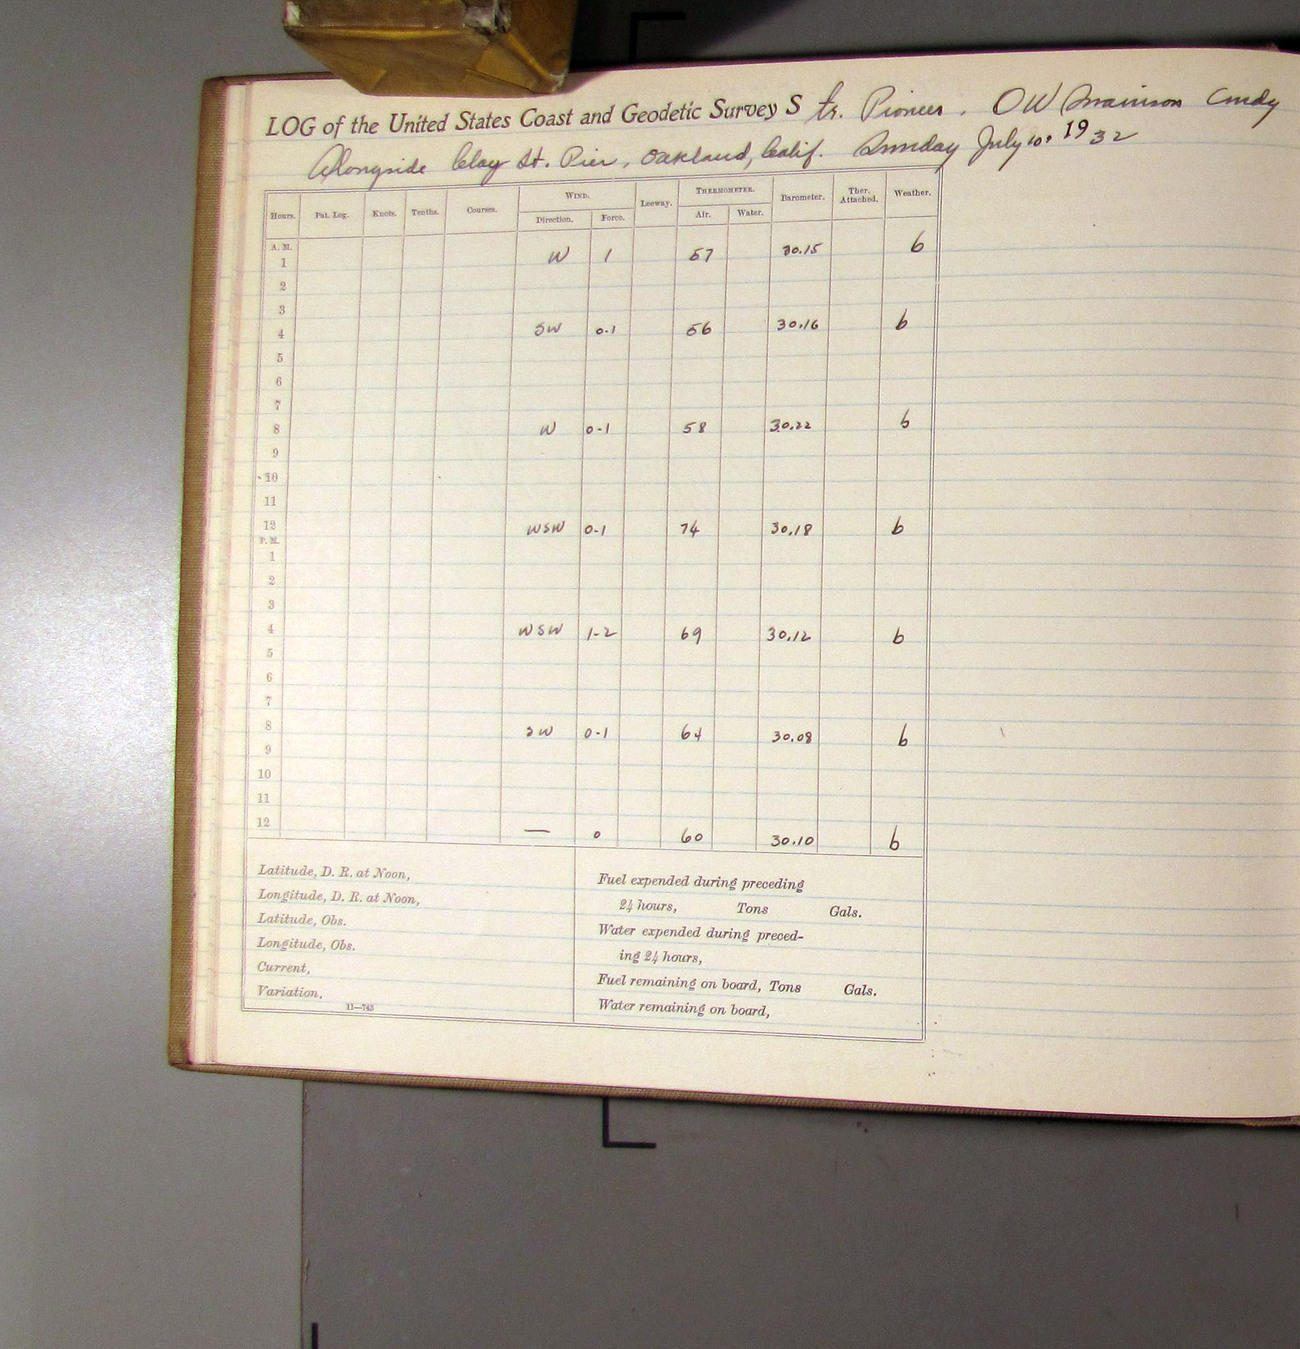 LOG of the United States Coast and Geodetic Survey Str. Pioneer. OW Swainson Comdg
Alongside Clay St. Pier, Oakland, Calif. Sunday July 10, 1932
Hours. Pat. Log. Knots. Tenths. Courses. WIND. Direction. Force. Leeway. THERMOMETER. Air. Water. Barometer. Ther. Attached. Weather.
A. M.
1 W 1 57 30.15 b
2
3
4 SW 0-1 56 30.16 b
5
6
7
8 W 0-1 58 30.22 b
9
10
11
12 WSW 0-1 74 30.18 b
P. M.
1
2
3
4 WSW 1-2 69 30.12 b
5
6
7
8 SW 0-1 64 30.08 b
9
10
11
12 — 0 60 30.10 b
Latitude, D. R. at Noon,
Longitude, D. R. at Noon,
Latitude, Obs.
Longitude, Obs.
Current,
Variation,
11—743
Fuel expended during preceding
24 hours, Tons Gals.
Water expended during preced-
ing 24 hours,
Fuel remaining on board, Tons Gals.
Water remaining on board,